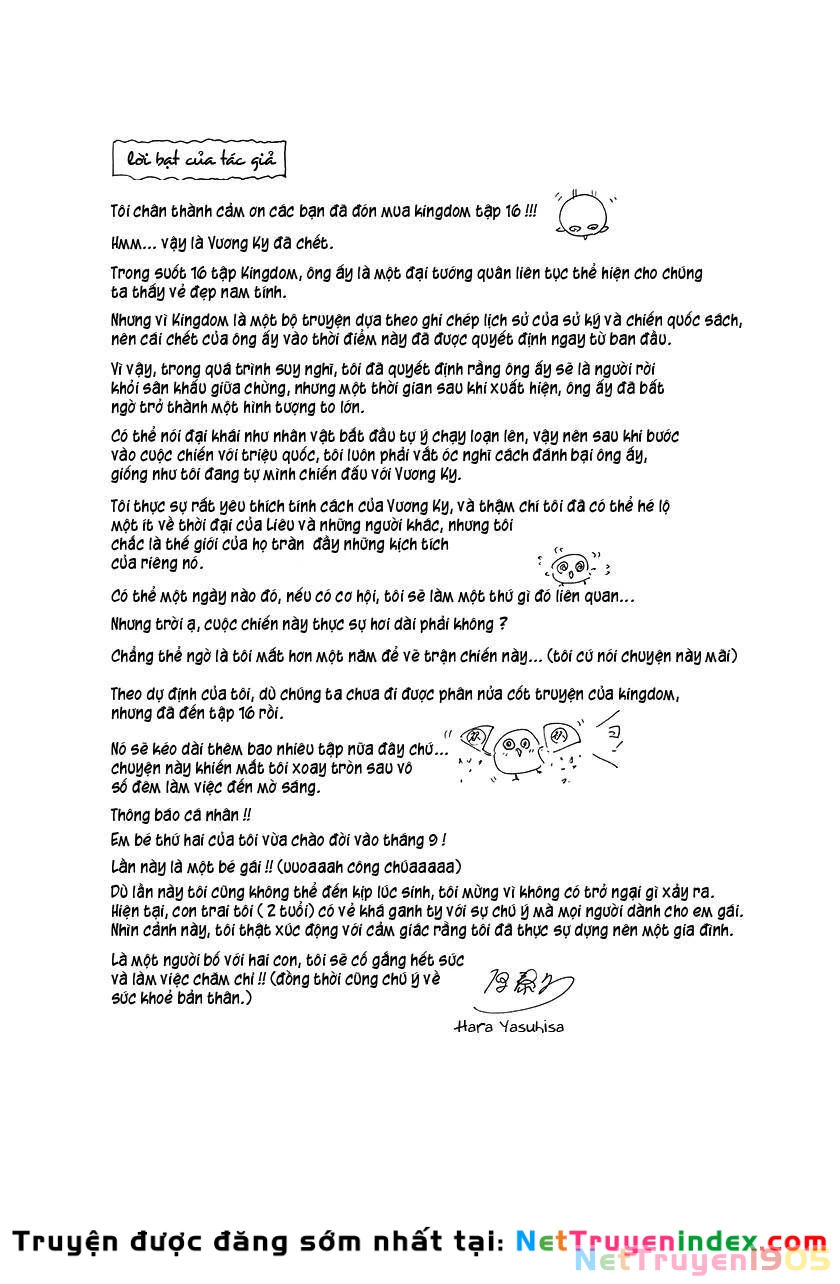 lời bạt của tác giả
Tôi chân thành cảm ơn các bạn đã đón mua kingdom tập 16 !!!
Hmm... vậy là Vương Kỵ đã chết.
Trong suốt 16 tập Kingdom, ông ấy là một đại tướng quân liên tục thể hiện cho chúng
ta thấy vẻ đẹp nam tính.
Nhưng vì Kingdom là một bộ truyện dựa theo ghi chép lịch sử của sử ký và chiến quốc sách,
nên cái chết của ông ấy vào thời điểm này đã được quyết định ngay từ ban đầu.
Vì vậy, trong quá trình suy nghĩ, tôi đã quyết định rằng ông ấy sẽ là người rời
khỏi sân khấu giữa chừng, nhưng một thời gian sau khi xuất hiện, ông ấy đã bất
ngờ trở thành một hình tượng to lớn.
Có thể nói đại khái như nhân vật bắt đầu tự ý chạy loạn lên, vậy nên sau khi bước
vào cuộc chiến với triệu quốc, tôi luôn phải vắt óc nghĩ cách đánh bại ông ấy,
giống như tôi đang tự mình chiến đấu với Vương Kỵ.
Tôi thực sự rất yêu thích tính cách của Vương Kỵ, và thậm chí tôi đã có thể hé lộ
một ít về thời đại của Liêu và những người khác, nhưng tôi
chắc là thế giới của họ tràn đầy những kịch tích
của riêng nó.
Có thể một ngày nào đó, nếu có cơ hội, tôi sẽ làm một thứ gì đó liên quan...
Nhưng trời ạ, cuộc chiến này thực sự hơi dài phải không ?
Chẳng thể ngờ là tôi mất hơn một năm để vẽ trận chiến này... (tôi cứ nói chuyện này mãi)
Theo dự định của tôi, dù chúng ta chưa đi được phân nửa cốt truyện của kingdom,
nhưng đã đến tập 16 rồi.
Nó sẽ kéo dài thêm bao nhiêu tập nữa đây chứ...
chuyện này khiến mắt tôi xoay tròn sau vô
số đêm làm việc đến mờ sáng.
Thông báo cá nhân !!
Em bé thứ hai của tôi vừa chào đời vào tháng 9 !
Lần này là một bé gái !! (uuoaaah công chúaaaaa)
Dù lần này tôi cũng không thể đến kịp lúc sinh, tôi mừng vì không có trở ngại gì xảy ra.
Hiện tại, con trai tôi ( 2 tuổi) có vẻ khá ganh tỵ với sự chú ý mà mọi người dành cho em gái.
Nhìn cảnh này, tôi thật xúc động với cảm giác rằng tôi đã thực sự dựng nên một gia đình.
Là một người bố với hai con, tôi sẽ cố gắng hết sức
và làm việc chăm chỉ !! (đồng thời cũng chú ý về
sức khoẻ bản thân.)
Hara Yasuhisa
Truyện được đăng sớm nhất tại: NetTruyenindex.com
NetTruyen1905